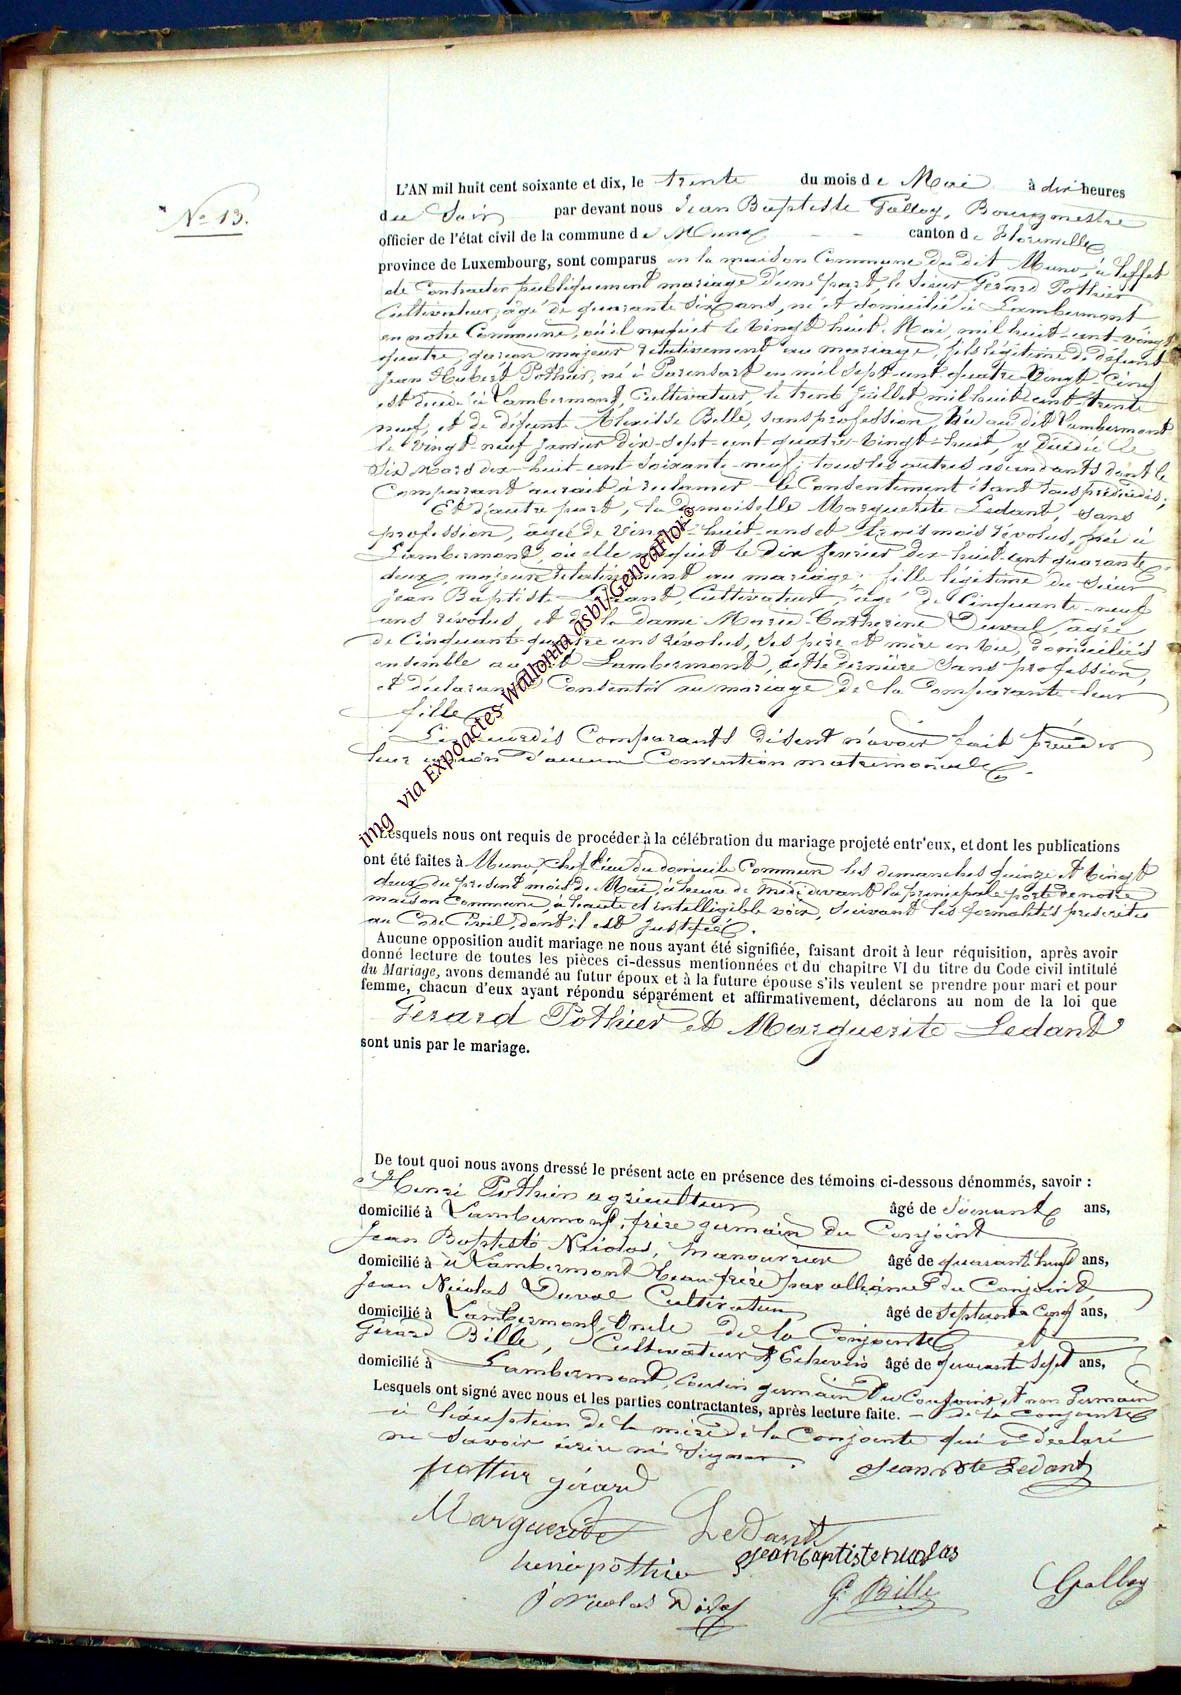 N° 13.
L'AN mil huit cent soixante et dix, le trente du mois de Mai à dix heures
du Soir par devant nous Jean Baptiste Galloy, Bourgmestre
officier de l'état civil de la commune de Muno canton de Florenville
province de Luxembourg, sont comparus en la maison Commune du dit Muno, à l'effet
de Contracter publiquement mariage d'une part, le Sieur Gérard Pothier
Cultivateur, âgé de quarante six ans, né et domicilié à Lambermont
en notre Commune, où il naquit le vingt huit Mai, mil huit-cent-vingt
quatre, garçon majeur relativement au mariage, fils légitime de défunt
Jean Hubert Pothier, né à Parensart en mil sept-cent quatre Vingt-Cinq
est décédé à Lambermont, Cultivateur, le trente Juillet mil huit cent-trente
neuf, et de défunte Bille, sans profession, née au dit Lambermont
le vingt-neuf Janvier dix-sept-cent quatre-vingt-huit, y décédée le
Six Mars dix-huit-cent Soixante-neuf; tous les autres ascendants dont le
Comparant aurait à réclamer le Consentement étant tous prédécédés;
Et d'autre part, la Demoiselle Marguerite Ledant, sans
profession, âgée de vingt-huit ans et trois mois révolus, née à
Lambermont, où elle naquit le dix février dix-huit-cent quarante
deux, majeure relativement au mariage, fille légitime du Sieur
Jean Baptiste Ledant, Cultivateur, âgé de Cinquante-neuf
ans révolus, et de la dame Marie-Catherine Duval, âgée
de Cinquante-quatre ans révolus, ses père et mère en vie, domiciliés
ensemble au dit Lambermont, cette dernière Sans profession,
et déclarant Consentir au mariage de la Comparante leur
fille
Les susdits Comparants disent n'avoir fait précéder
leur union d'aucune Convention matrimoniale.
img via Expoactes-Wallonia asbl/GeneaFlor ©
Lesquels nous ont requis de procéder à la célébration du mariage projeté entr'eux, et dont les publications
ont été faites à Muno, chef lieu du domicile Commun les dimanches quinze et vingt
deux du présent mois de Mai à heure de midi devant la principale porte de notre
maison Commune à haute et intelligible voix, suivant les formalités prescrites
au Code Civil, dont il est justifié.
Aucune opposition audit mariage ne nous ayant été signifiée, faisant droit à leur réquisition, après avoir
donné lecture de toutes les pièces ci-dessus mentionnées et du chapitre VI du titre du Code civil intitulé
du Mariage, avons demandé au futur époux et à la future épouse s'ils veulent se prendre pour mari et pour
femme, chacun d'eux ayant répondu séparément et affirmativement, déclarons au nom de la loi que
Gerard Pothier et Marguerite Ledant
sont unis par le mariage.
De tout quoi nous avons dressé le présent acte en présence des témoins ci-dessous dénommés, savoir :
Henri Pothier agriculteur âgé de Soixante ans,
domicilié à Lambermont, frère germain du Conjoint
Jean Baptiste Nicolas, Manouvrier âgé de quarante huit ans,
domicilié à à Lambermont beau-frère par alliance du Conjoint,
Jean Nicolas Duval Cultivateur âgé de Septante Cinq ans,
domicilié à Lambermont, Oncle de la Conjointe et
Gerard Bille, Cultivateur & Echevin âgé de quarante Sept ans,
domicilié à Lambermont, Cousin germain du Conjoint et non Germain
Lesquels ont signé avec nous et les parties contractantes, après lecture faite. - de la Conjointe
à l'exception de la mère de la Conjointe qui a déclaré
ne Savoir écrire ni Signer.
Jean Bte Ledant
pottier gérard
Marguerite Ledant
henri pothier Jean baptiste nicolas
G. Bille Galloy